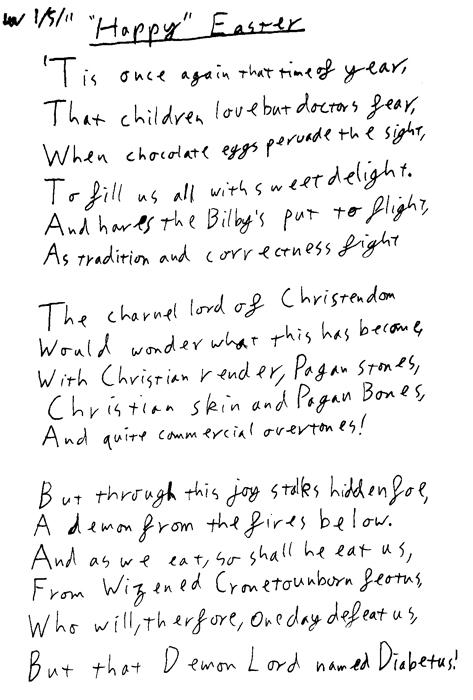 1/5/11 "Happy" Easter
'Tis once again that time of year,
That children love but doctors fear,
When chocolate eggs pervade the sight,
To fill us all with sweet delight.
And hares the Bilby's put to flight,
As tradition and correctness fight
The charnel lord of Christendom
Would wonder what this has become,
With Christian render, Pagan stones,
Christian skin and Pagan Bones,
And quite commercial overtones!
But through this joy stalks hidden foe,
A demon from the fires below.
And as we eat, so shall he eat us,
From Wizened Crone to unborn feotus,
Who will, therfore, one day defeat us,
But that Demon Lord named Diabetus!